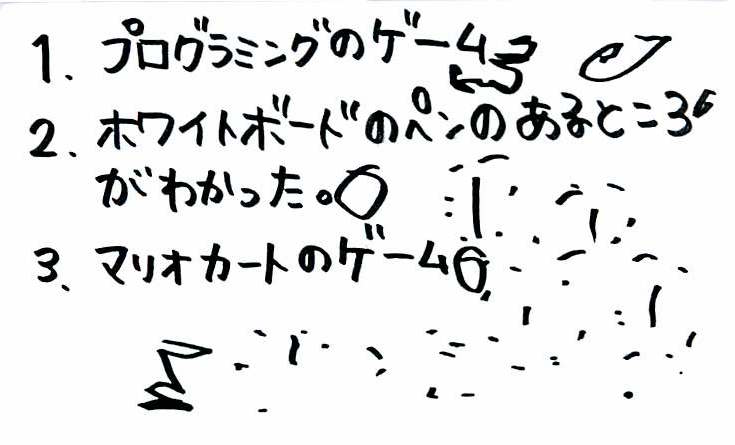 1. プログラミングのゲーム
2. ホワイトボードのペンのあるところ
がわかった。
3. マリオカートのゲーム